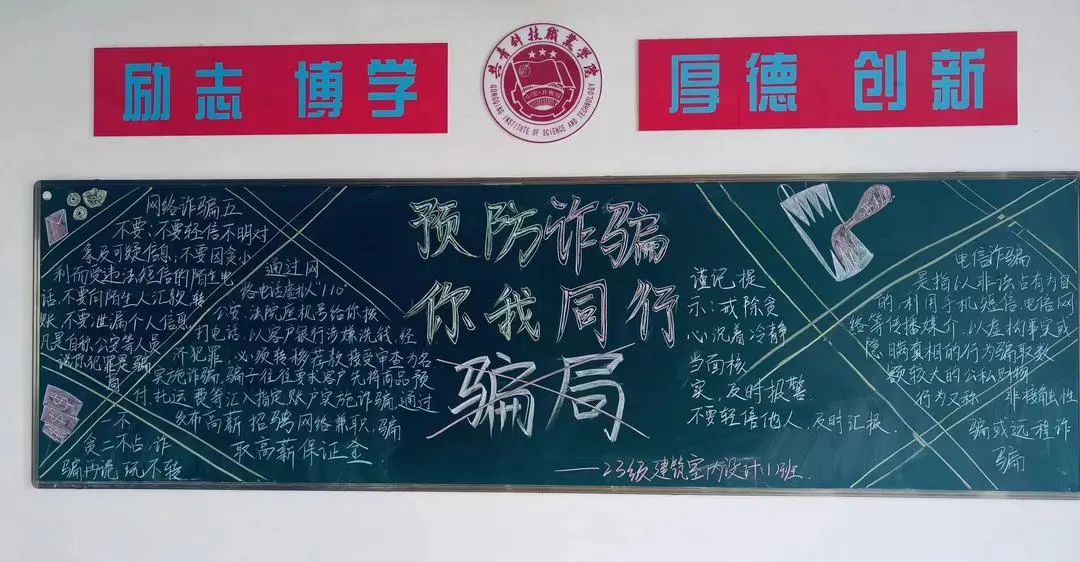 励志 博学
共青科技职业学院
GONGQING INSTITUTE OF SCIENCE AND TECHNOLOGY
厚德 创新
网络诈骗五
不要:不要轻信不明对
象及可疑信息,不要因贪小
利而受违法短信的陌生电
话,不要向陌生人汇款、转
账,不要泄漏个人信息,
凡是自称公安等人员
说你犯罪是骗
局
一不
贪二不占,诈
骗再诡 玩不转
通过网
络电话虚拟"110"
公安、法院座机号给你拨
打电话,以客户银行涉嫌洗钱、经
济犯罪 必须转移存款接受审查为名
实施诈骗,骗子往往要求客户先将商品预
付、托运 费等汇入指定账户实施诈骗,通过
发布高薪 招聘网络兼职,骗
取高薪保证金
预防诈骗
你我同行
骗局
——23级建筑室内设计1班.
谨记提
示:戒除贪
心,沉着冷静
当面核
实,及时报警
不要轻信他人,及时汇报.
电信诈骗
是指以人非法占有为目
的,利用手机短信、电信网
络等传播媒介,以虚构事实或
隐瞒真相的行为骗取数
额较大的公私财物
行为又称 非接触性
骗或远程诈
骗